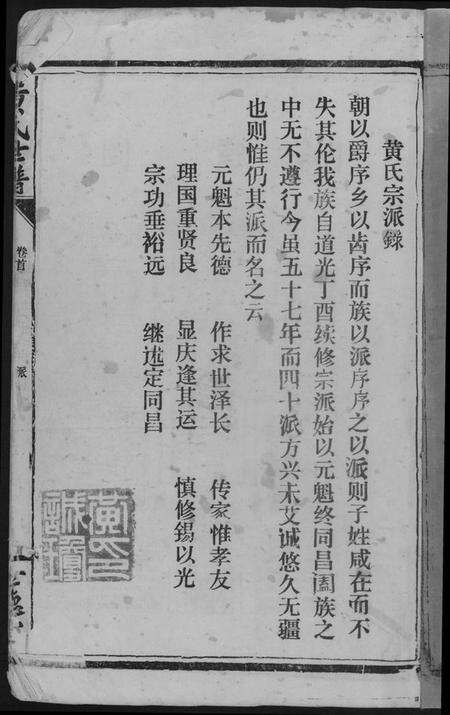 黄氏宗派錄
朝以爵序乡以齿序而族以派序序之以派则子姓咸在而不
失其伦我族自道光丁酉续修宗派始以元魁终同昌阖族之
中无不遵行今虽五十七年而四十派方兴未艾诚悠久无疆
也则惟仍其派而名之云
元魁本先德 作求世泽长 传家惟孝友
理国重贤良 显庆逢其运 慎修锡以光
宗功垂裕远 继述定同昌
黄氏世谱
卷首
派